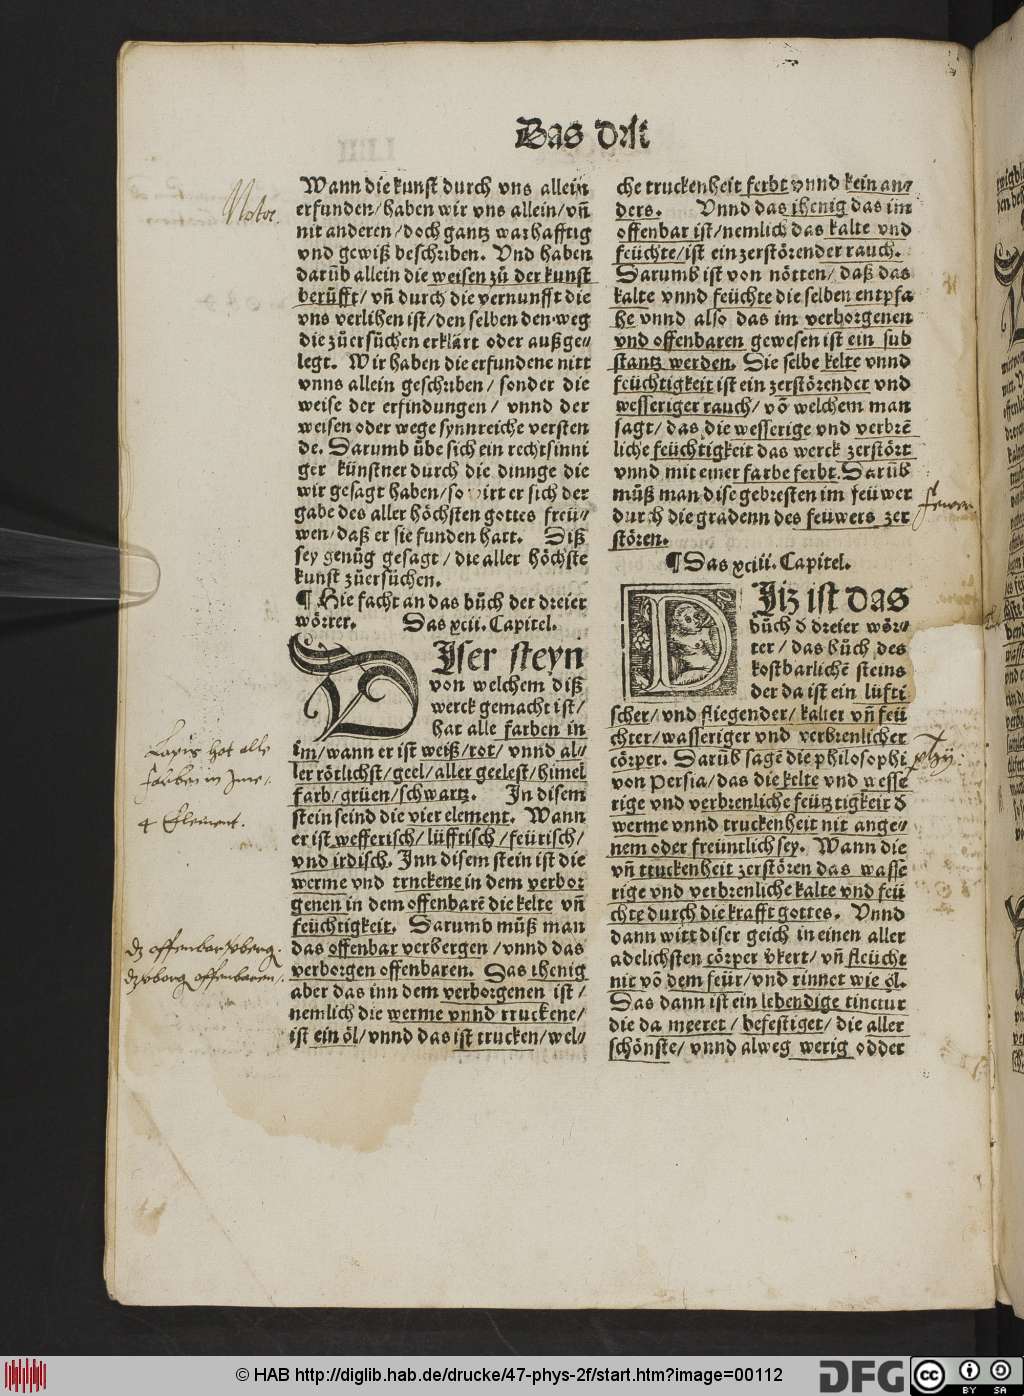 Das Drit
Wann die kunst durch vns allein
erfunden/haben wir vns allein/vñ
nit anderen/doch gantz warhafftig
vnd gewiß beschriben. Vnd haben
darüb allein die weisen zů der kunst
berüfft/ vñ durch die vernunfft die
vns verlihen ist/den selben den weg
die zůersůchen erklärt oder außge⸗
legt. Wir haben die erfundene nitt
vnns allein geschriben/ sonder die
weise der erfindungen/ vnnd der
weisen oder wege synnreiche versten
de. Darumb übe sich ein rechtsinni
ger künstner durch die dinnge die
wir gesagt haben/so wirt er sich der
gabe des aller höchsten gottes freü⸗
wen/daß er sie funden hatt. Diß
sey genůg gesagt/die aller höchste
kunst zůersůchen.
¶ Hie facht an das bůch der dreier
wörter. Das xcii. Capitel.
DIser steyn
von welchem diß
werck gemacht ist/
hat alle farben in
im/wann er ist weiß/rot/ vnnd al⸗
ler rötlichst/geel/aller geelest/himel
farb/grüen/schwartz. In disem
stein seind die vier element. Wann
er ist wesserisch/ lüfftisch/feürisch/
vnd irdisch. Inn disem stein ist die
werme vnd trnckene in dem verbor
genen in dem offenbarē die kelte vñ
feüchtigkeit. Darumb můß man
das offenbar verbergen/vnnd das
verborgen offenbaren. Das ihenig
aber das inn dem verborgenen ist/
nemlich die werme vnnd truckene/
ist ein öl/vnnd das ist trucken/wel⸗
che truckenheit ferbt vnnd kein an⸗
ders. Vnnd das ihenig das im
offenbar ist/nemlich das kalte vnd
feüchte/ist ein zerstörender rauch.
Darumb ist von nötten/daß das
kalte vnnd feüchte die selben entpfa
he vnnd also das im verborgenen
vnd offenbaren gewesen ist ein sub
stantz werden. Die selbe kelte vnnd
feüchtigkeit ist ein zerstörender vnd
wesseriger rauch/võ welchem man
sagt/das die wesserige vnd verbrē
liche feüchtigkeit das werck zerstört
vnnd mit einer farbe ferbt. Darüb
můß man dise gebresten im feüwer
durch die gradenn des feüwers zer
stören.
¶ Das xciii. Capitel.
DIz ist das
bůch d dreier wör⸗
ter/das bůch des
kostbarlichē steins
der da ist ein lüfti
scher/vnd fliegender/kalter vñ feü
chter/wasseriger vnd verbrenlicher
cörper. Darüb sagē die philosophi
von Persia/das die kelte vnd wesse
rige vnd verbrenliche feütztigkeit d
werme vnnd truckenheit nit ange⸗
nem oder freüntlich sey. Wann die
vñ truckenheit zerstören das wasse
rige vnd verbrenliche kalte vnd feü
chte durch die krafft gottes. Vnnd
dann witt diser geich in einen aller
adelichsten cörper v̈kert/vñ fleücht
nit võ dem feür/vnd rinnet wie öl.
Das dann ist ein lebendige tinctur
die da meeret/ befestiget/die aller
schönste/ vnnd alweg werig odder
Notor.
Lapis hat alle
farben in jme.
4 Element.
dz offenbar vberg.
dz vborg offenbaren.
feuwr
© HAB http://diglib.hab.de/drucke/47-phys-2f/start.htm?image=00112
DFG
cc
BY
SA